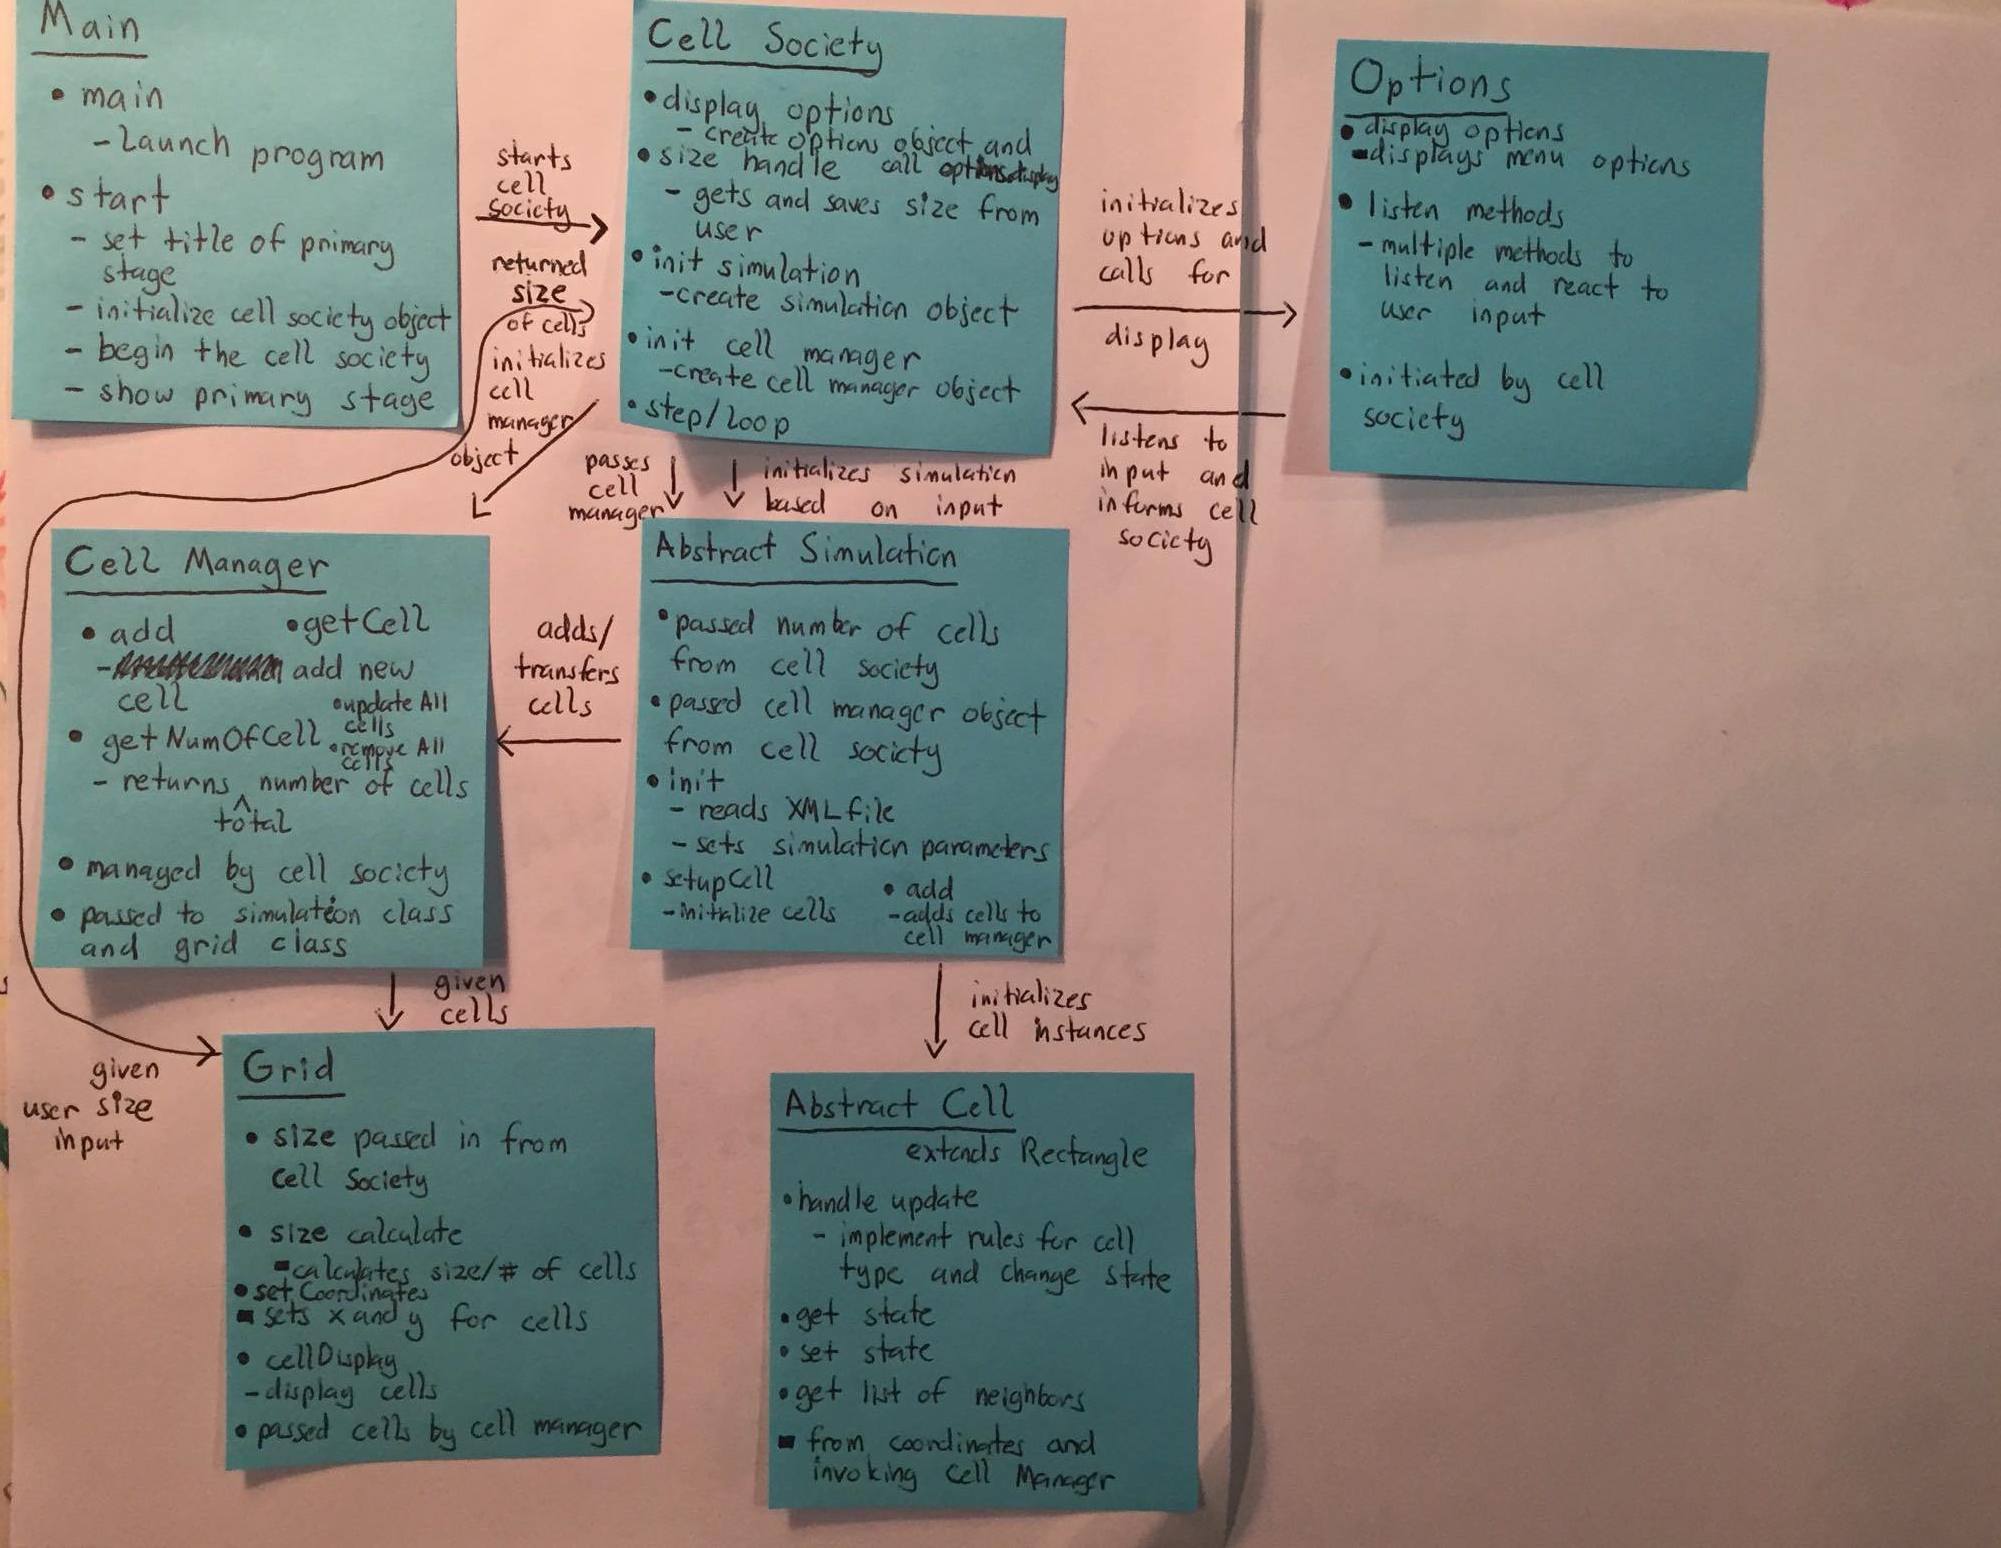 Main
• main
- Launch program
• start
- set title of primary
stage
- initialize cell society object
- begin the cell society
- show primary stage
starts
cell
society
returned
size
of cells
initializes
cell
manager
object
Cell Society
• display options
- create options object and
call options display
• size handle
- gets and saves size from
user
• init simulation
- create simulation object
• init cell manager
- create cell manager object
• step/loop
initializes
options and
calls for
display
listens to
input and
informs cell
society
Options
• display options
- displays menu options
• listen methods
- multiple methods to
listen and react to
user input
• initiated by cell
society
passes
cell
manager
initializes simulation
based on input
Cell Manager
• add
- add new
cell
• getCell
• update All
cells
• remove All
cells
• getNumOfCell
- returns ^ number of cells
total
• managed by cell society
• passed to simulation class
and grid class
adds/
transfers
cells
Abstract Simulation
• passed number of cells
from cell society
• passed cell manager object
from cell society
• init
- reads XML file
- sets simulation parameters
• setupCell
- initialize cells
• add
- adds cells to
cell manager
given
cells
initializes
cell instances
given
user size
input
Grid
• size passed in from
Cell Society
• size calculate
- calculates size/# of cells
• set Coordinates
- sets x and y for cells
• cellDisplay
- display cells
• passed cells by cell manager
Abstract Cell
extends Rectangle
• handle update
- implement rules for cell
type and change state
• get state
• set state
• get list of neighbors
- from coordinates and
invoking Cell Manager